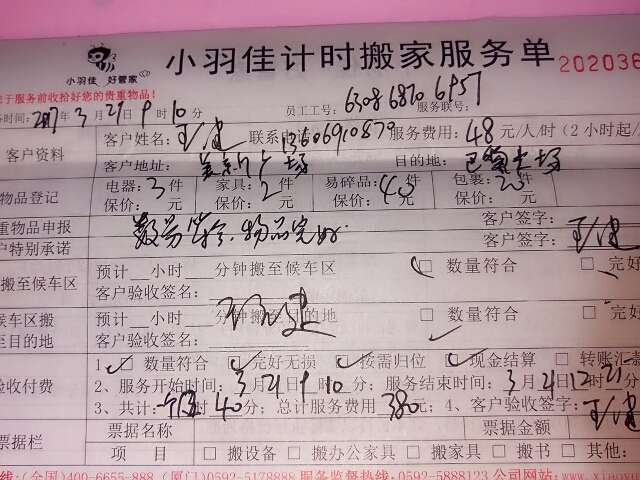 小羽佳 好管家
小羽佳计时搬家服务单
202036
于服务前收拾好您的贵重物品!
务时间: 2017年3月21日9时10分 员工工号: 6308 6870 6957 服务联号:
客户资料 客户姓名: 王建 联系电话 13606910879 服务费用: 48元/人/时(2小时起/
客户地址: 广场 目的地: 广场
物品登记 电器: 3件 家具: 2件 易碎品: 件 包裹: 件
保价: 元 保价: 元 保价: 元 保价: 元
重物品申报 数易 物品完好. 客户签字:
户特别承诺 客户签字: 王建
搬至候车区 预计__小时__分钟搬至候车区 数量符合 完好
客户验收签名:
候车区搬 预计__小时__分钟搬至目的地 数量符合 完好
至目的地 客户验收签名:
验收付费 1、数量符合 完好无损 按需归位 现金结算 转账汇款
2、服务开始时间: 3月21日9时10分; 服务结束时间: 3月21日12时21分
3、共计: 时40分; 总计服务费用380元; 4、客户验收签字: 王建
票据栏 票据名称 票据金额
项 目 搬设备 搬办公家具 搬家具 搬书 其他:
线:(全国)400-6655-888 (厦门)0592-5178888 服务监督热线: 0592-5888123 公司网站: www.xiaoyu